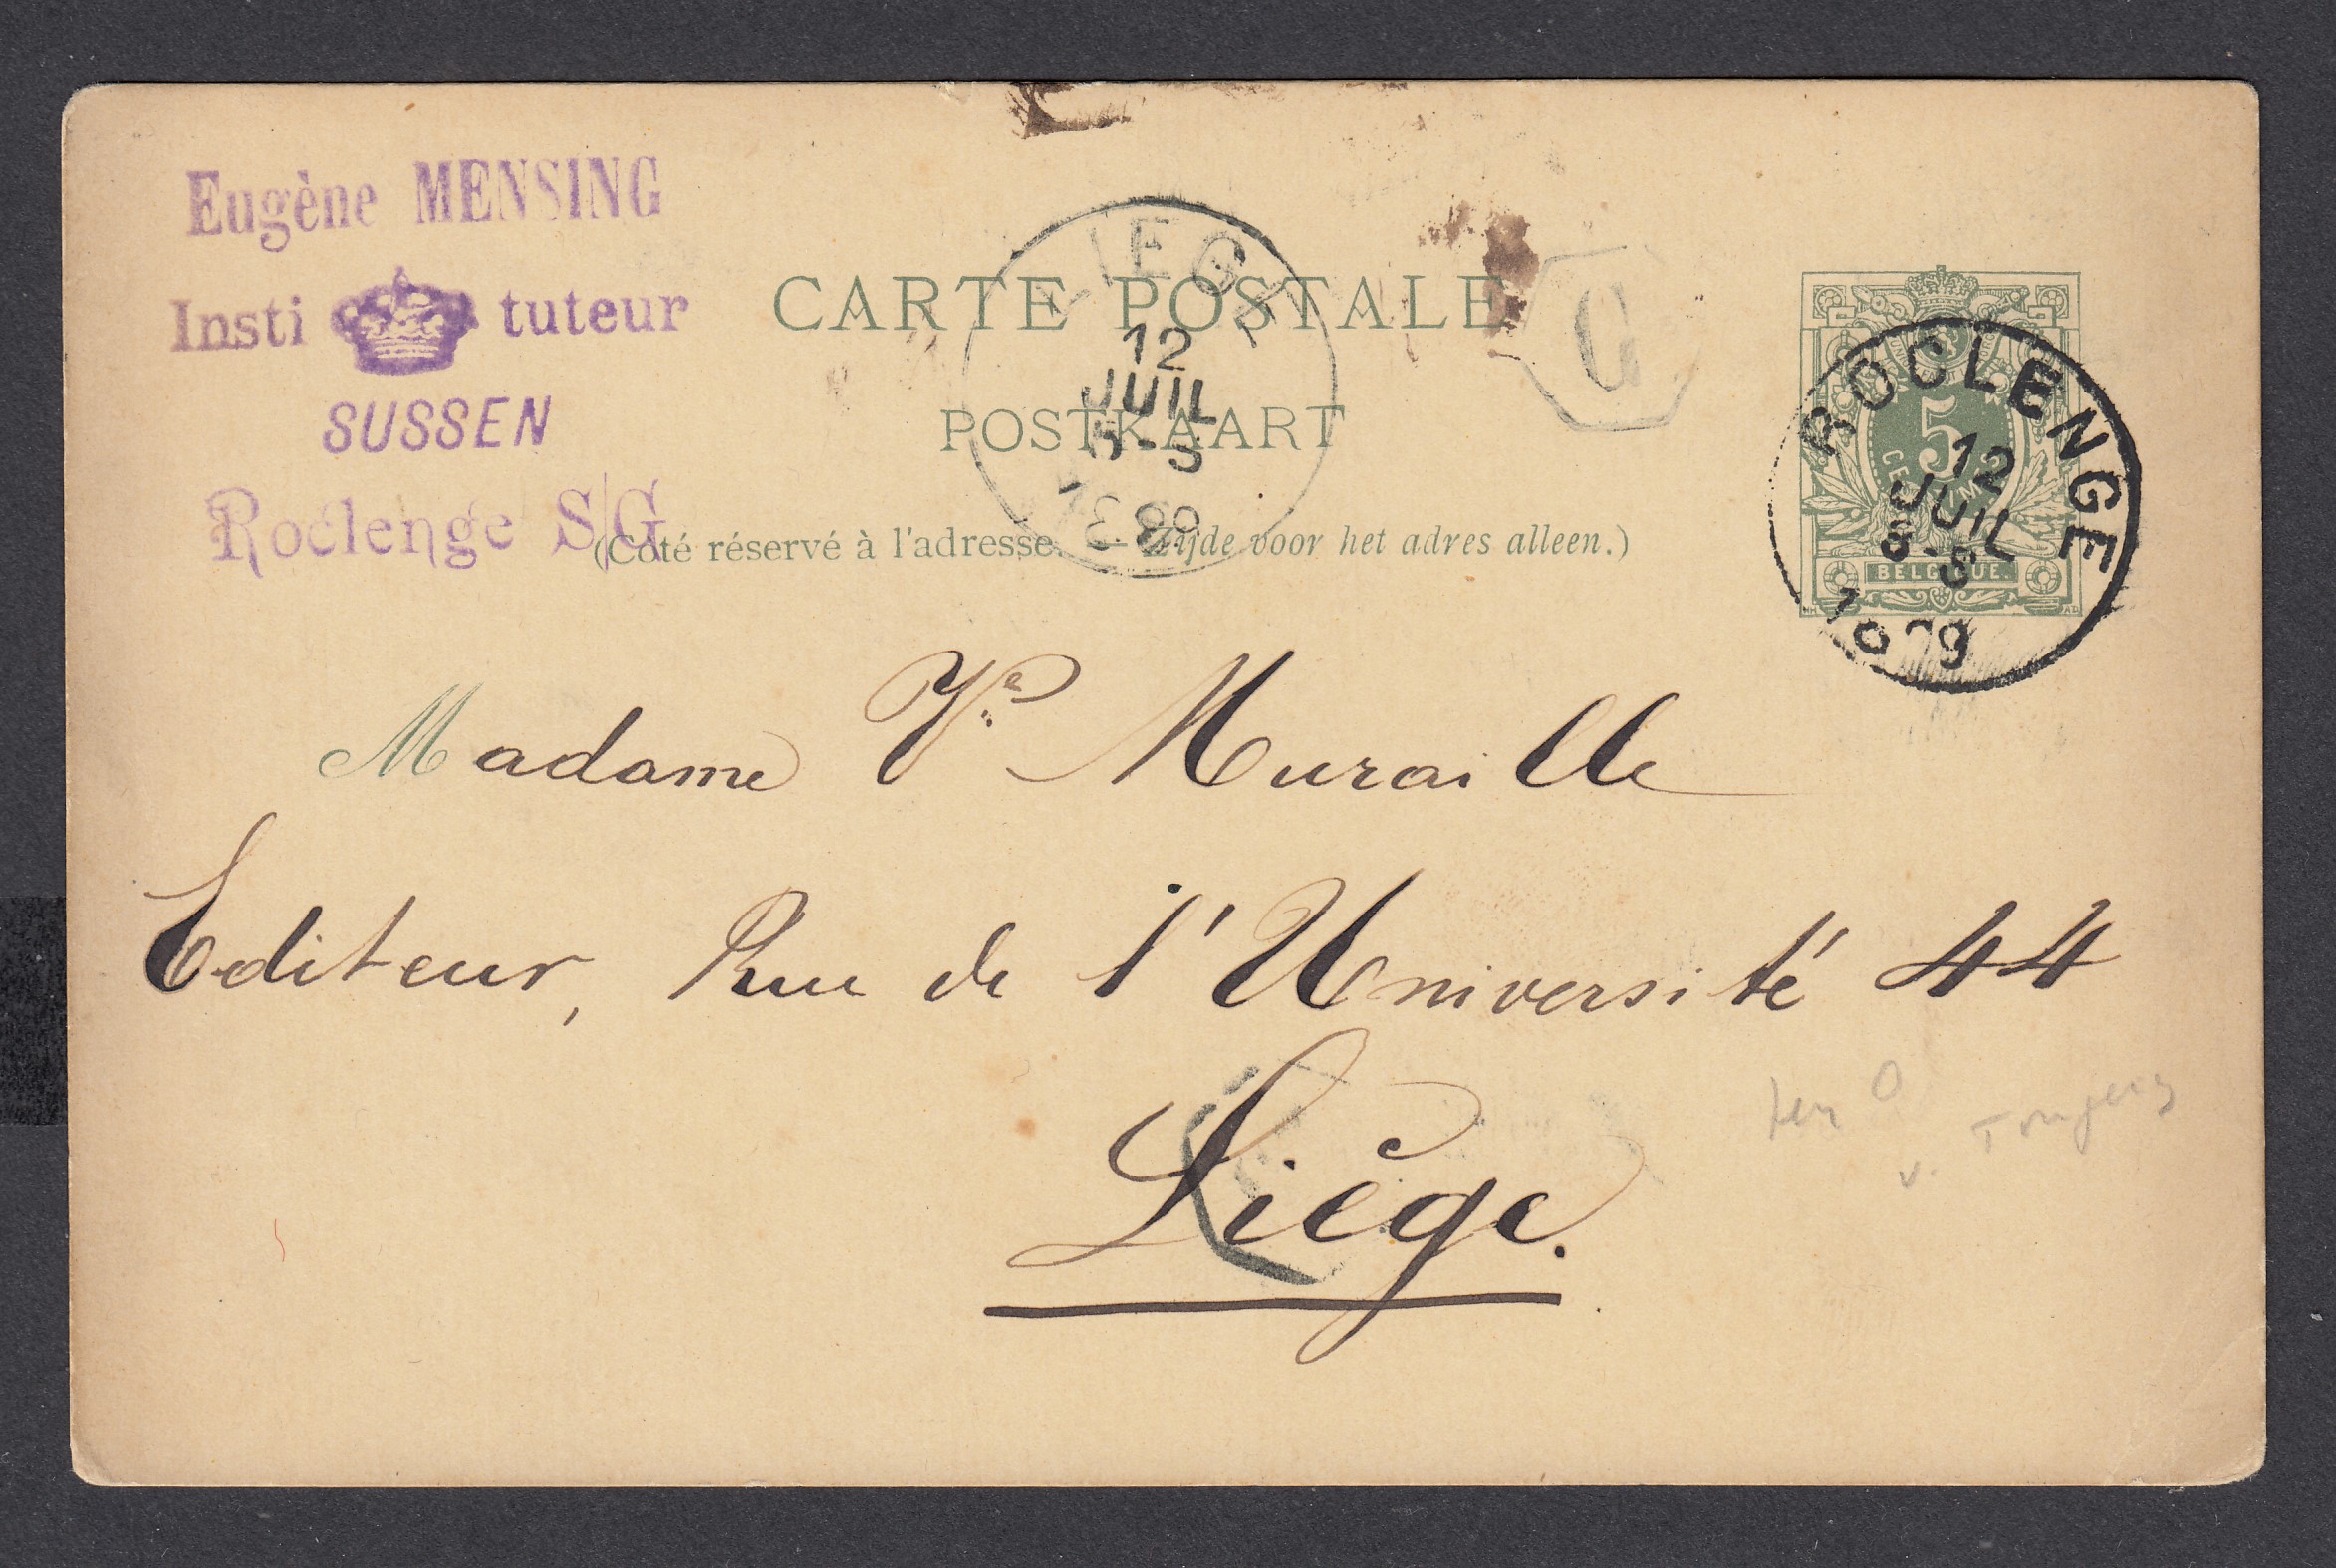 Eugène MENSING
Insti tuteur
SUSSEN
Roclenge S/G
CARTE POSTALE
POSTKAART
(Côté réservé à l'adresse. — Zijde voor het adres alleen.)
LIEG
12
JUIL
5
G
5
CENTIMES
BELGIQUE.
ROCLENGE
12
JUIL
8-S
Madame Vᵉ Muraille
Editeur, Rue de l'Université 44
Liège.
v. Tongers